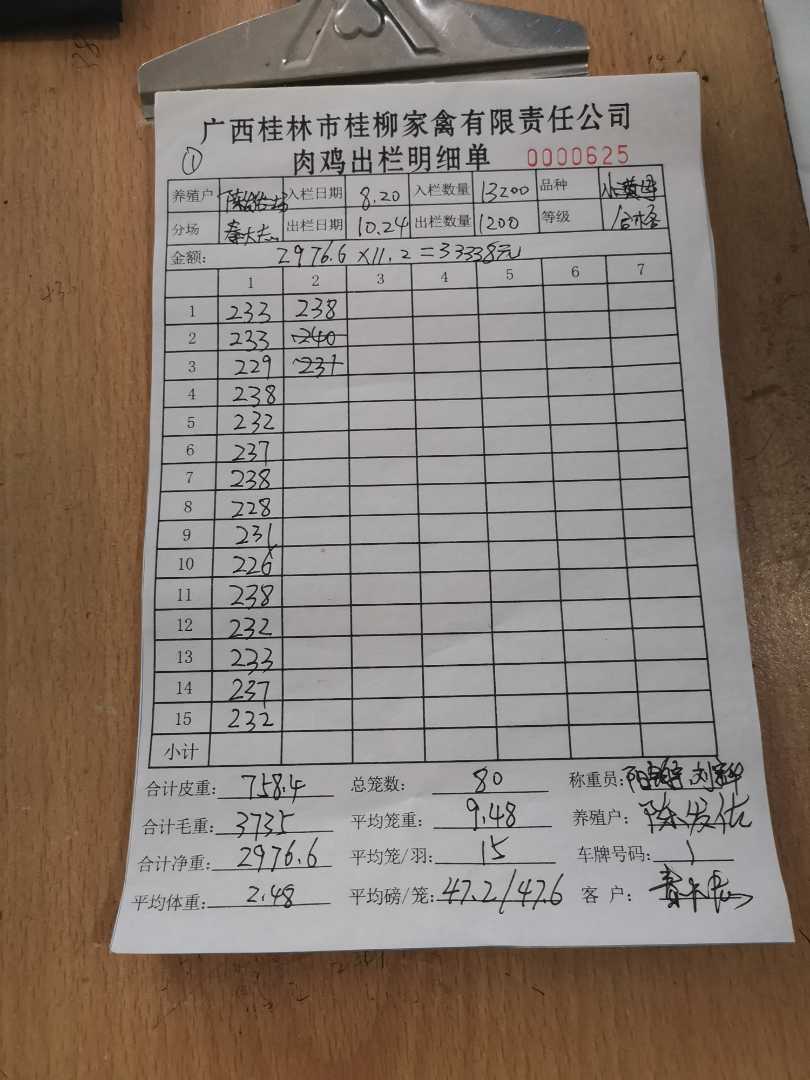 广西桂林市桂柳家禽有限责任公司
① 肉鸡出栏明细单 0000625
养殖户 入栏日期 8.20 入栏数量 13200 品种
分场 秦大志 出栏日期 10.24 出栏数量 1200 等级 合格
金额: 2976.6×11.2=33338元
1 2 3 4 5 6 7
1 233 238
2 233 240
3 229 231
4 238
5 232
6 237
7 238
8 228
9 231
10 226
11 238
12 232
13 233
14 237
15 232
小计
合计皮重: 758.4 总笼数: 80 称重员:
合计毛重: 3735 平均笼重: 9.48 养殖户: 陈发佑
合计净重: 2976.6 平均笼/羽: 15 车牌号码: 1
平均体重: 2.48 平均磅/笼: 47.2/47.6 客 户: